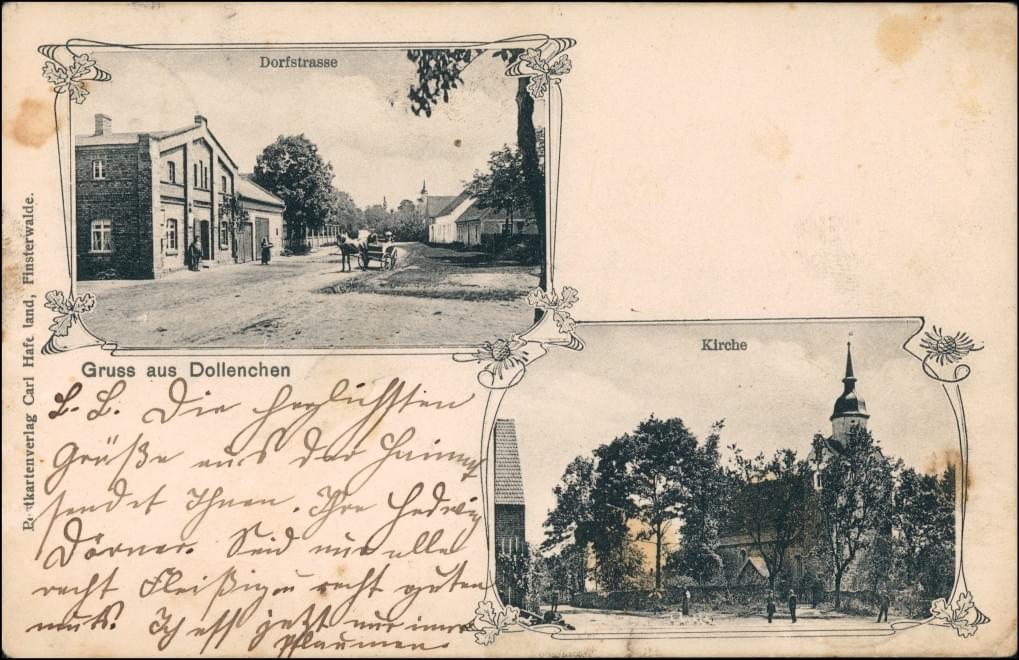 Dorfstrasse
Kirche
Gruss aus Dollenchen
Postkartenverlag Carl Hafe land, Finsterwalde.
L. L. Die herzlichsten
Grüße aus der Heimat
sendet Ihnen. Ihre Hedwig
Dörner. Seid nur alle
recht Fleißig u recht guten
mut. Ich eß jetzt nur immer
Pflaumen.